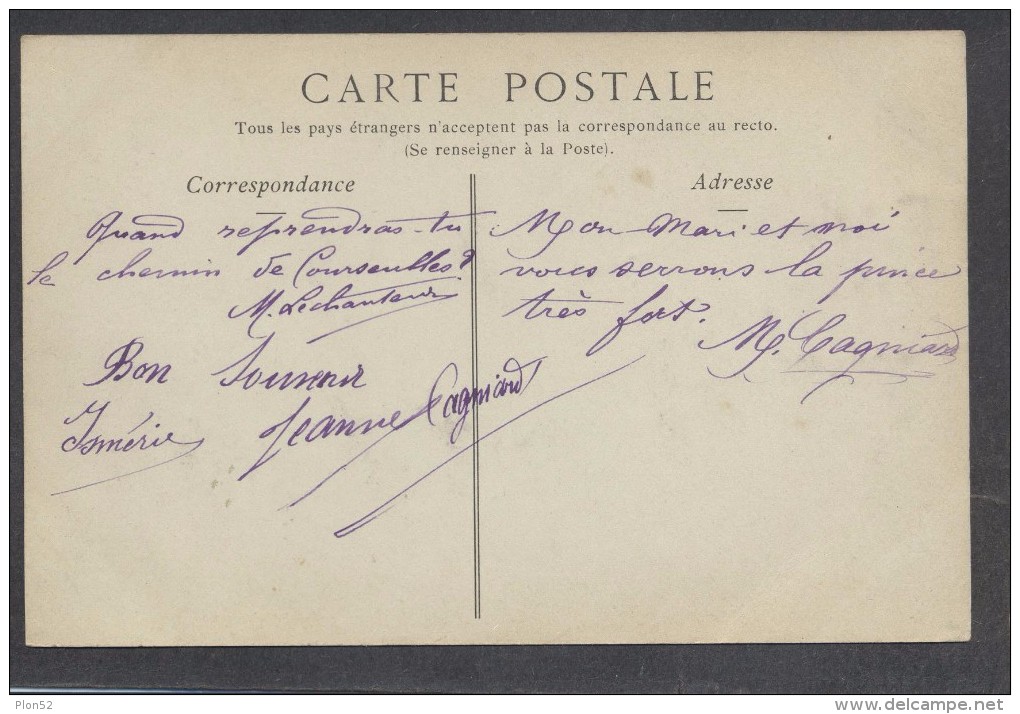 CARTE POSTALE
Tous les pays étrangers n'acceptent pas la correspondance au recto.
(Se renseigner à la Poste).
Correspondance
Quand reprendras-tu
le chemin de Courseulles?
M. Lechanteur
Bon Souvenir
Ismérie Jeanne Cagniard
Adresse
Mon Mari et moi
vous serrons la pince
très fort.
M. Cagniard
Plon52
www.delcampe.net